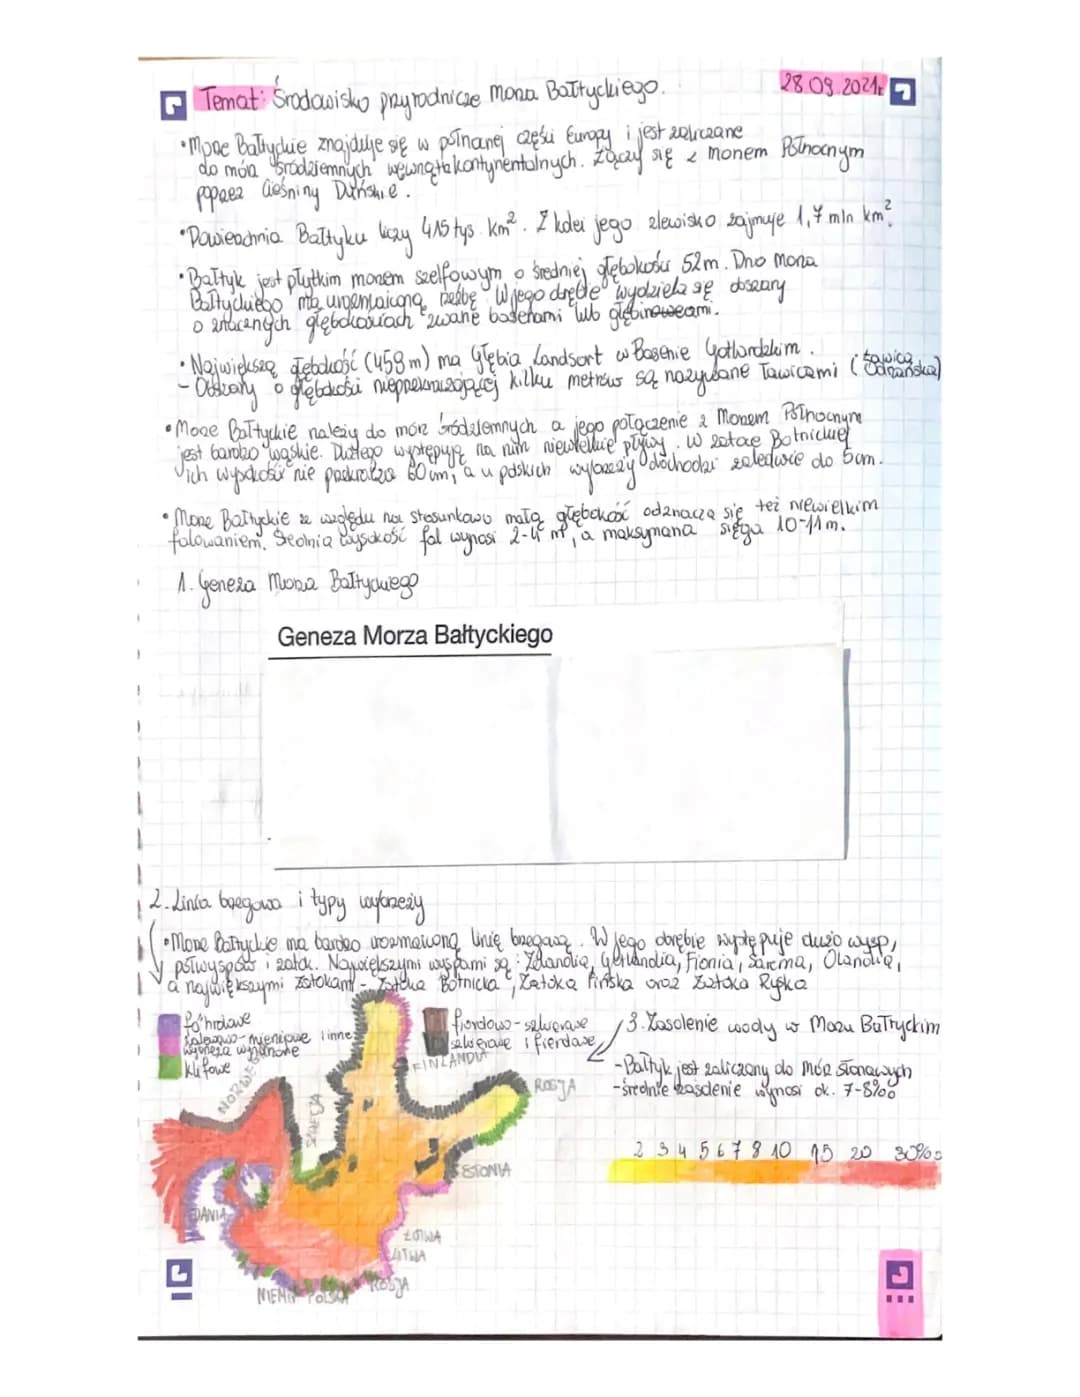 Temat: Środowisko przyrodnicze Morza Bałtyckiego.
28.09.2021r
•Morze Bałtyckie znajduje się w północnej części Europy i jest zaliczane
do mórz śródziemnych wewnątrzkontynentalnych. Łączy się z Morzem Północnym
poprzez Cieśniny Duńskie.
•Powierzchnia Bałtyku liczy 415 tys. km². Z kolei jego zlewisko zajmuje 1,7 mln km².
•Bałtyk jest płytkim morzem szelfowym o średniej głębokości 52m. Dno morza
Bałtyckiego ma urozmaiconą rzeźbę. W jego obrębie wydziela się obszary
o znacznych głębokościach zwane basenami lub głębinowcami.
•Największą głębokość (459 m) ma Głębia Landsort w Basenie Gotlandzkim.
- Obszary o głębokości nieprzekraczającej kilku metrów są nazywane ławicami (Ławica Odrzańska)
•Morze Bałtyckie należy do mórz śródziemnych a jego połączenie z Morzem Północnym
jest bardzo wąskie. Dlatego występują na nim niewielkie pływy. W zatoce Botnickiej
ich wysokość nie przekracza 60 cm, a u polskich wybrzeży dochodzi zaledwie do 5cm.
•Morze Bałtyckie ze względu na stosunkowo małą głębokość odznacza się też niewielkim
falowaniem. Średnia wysokość fal wynosi 2-4 m, a maksymana sięga 10-11 m.
1. Geneza Morza Bałtyckiego
Geneza Morza Bałtyckiego
2. Linia brzegowa i typy wybrzeży
•Morze Bałtyckie ma bardzo urozmaiconą linię brzegową. W jego obrębie występuje dużo wysp,
półwyspów i zatok. Największymi wyspami są: Zelandia, Gotlandia, Fionia, Sarema, Olandia,
a największymi zatokami - Zatoka Botnicka, Zatoka Fińska oraz Zatoka Ryska
fohrdowe
zalewowo-mierzejowe i inne
wybrzeża wyrównane
klifowe
fiordowo-szkierowe
szkierowe i fierdowe
3. Zasolenie wody w Morzu Bałtyckim
-Bałtyk jest zaliczany do mórz słonawych
-średnie zasolenie wynosi ok. 7-8‰
2 3 4 5 6 7 8 10 15 20 30‰
NORWEGIA
SZWECJA
FINLANDIA
ROSJA
ESTONIA
DANIA
ŁOTWA
LITWA
ROSJA
NIEMCY
POLSKA